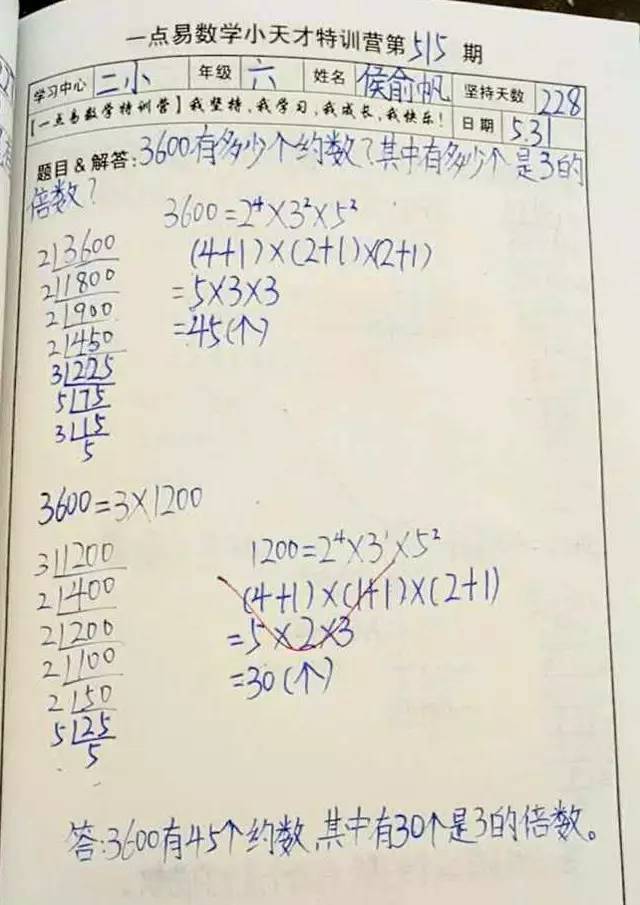 一点易数学小天才特训营第515期
学习中心 二小 年级 六 姓名 侯俞帆 坚持天数 228
【一点易数学特训营】我坚持,我学习,我成长,我快乐! 日期 5.31
题目&解答:3600有多少个约数?其中有多少个是3的
倍数?
3600=2⁴×3²×5²
(4+1)×(2+1)×(2+1)
=5×3×3
=45(个)
2|3600
2|1800
2|900
2|450
3|225
5|75
3|15
5
3600=3×1200
3|1200
2|400
2|200
2|100
2|50
5|25
5
1200=2⁴×3¹×5²
(4+1)×(1+1)×(2+1)
=5×2×3
=30(个)
答:3600有45个约数,其中有30个是3的倍数。